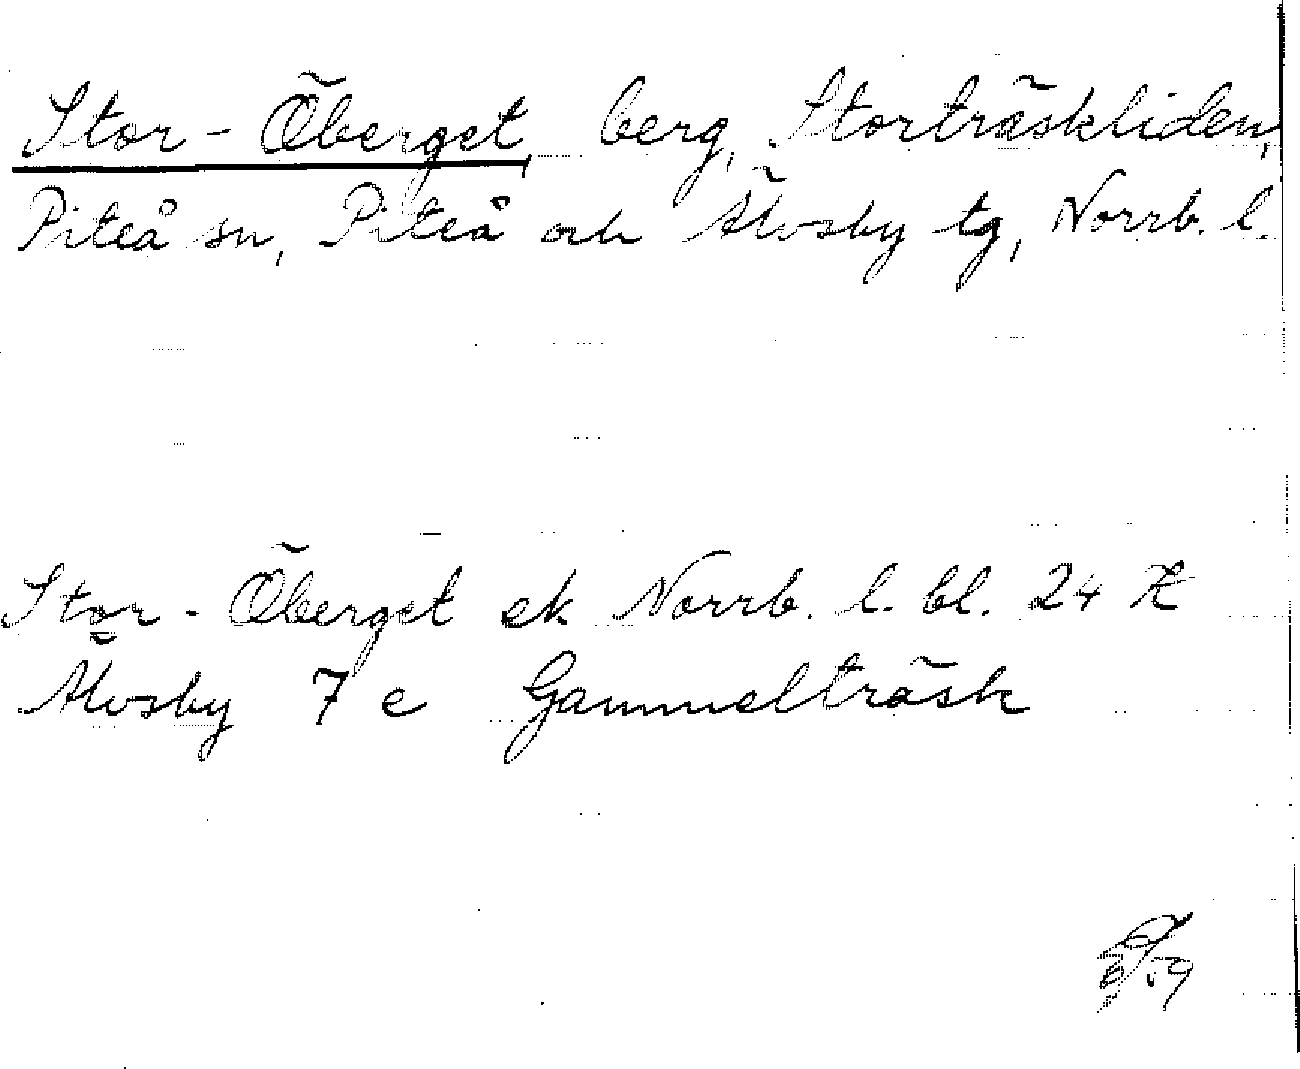 Stor-Öberget, berg, Storträskliden,
Piteå sn, Piteå och Älvsby tg, Norrb. l.
Stor-Öberget ek Norrb. l. bl. 24
Älvsby 7 e Gammelträsk